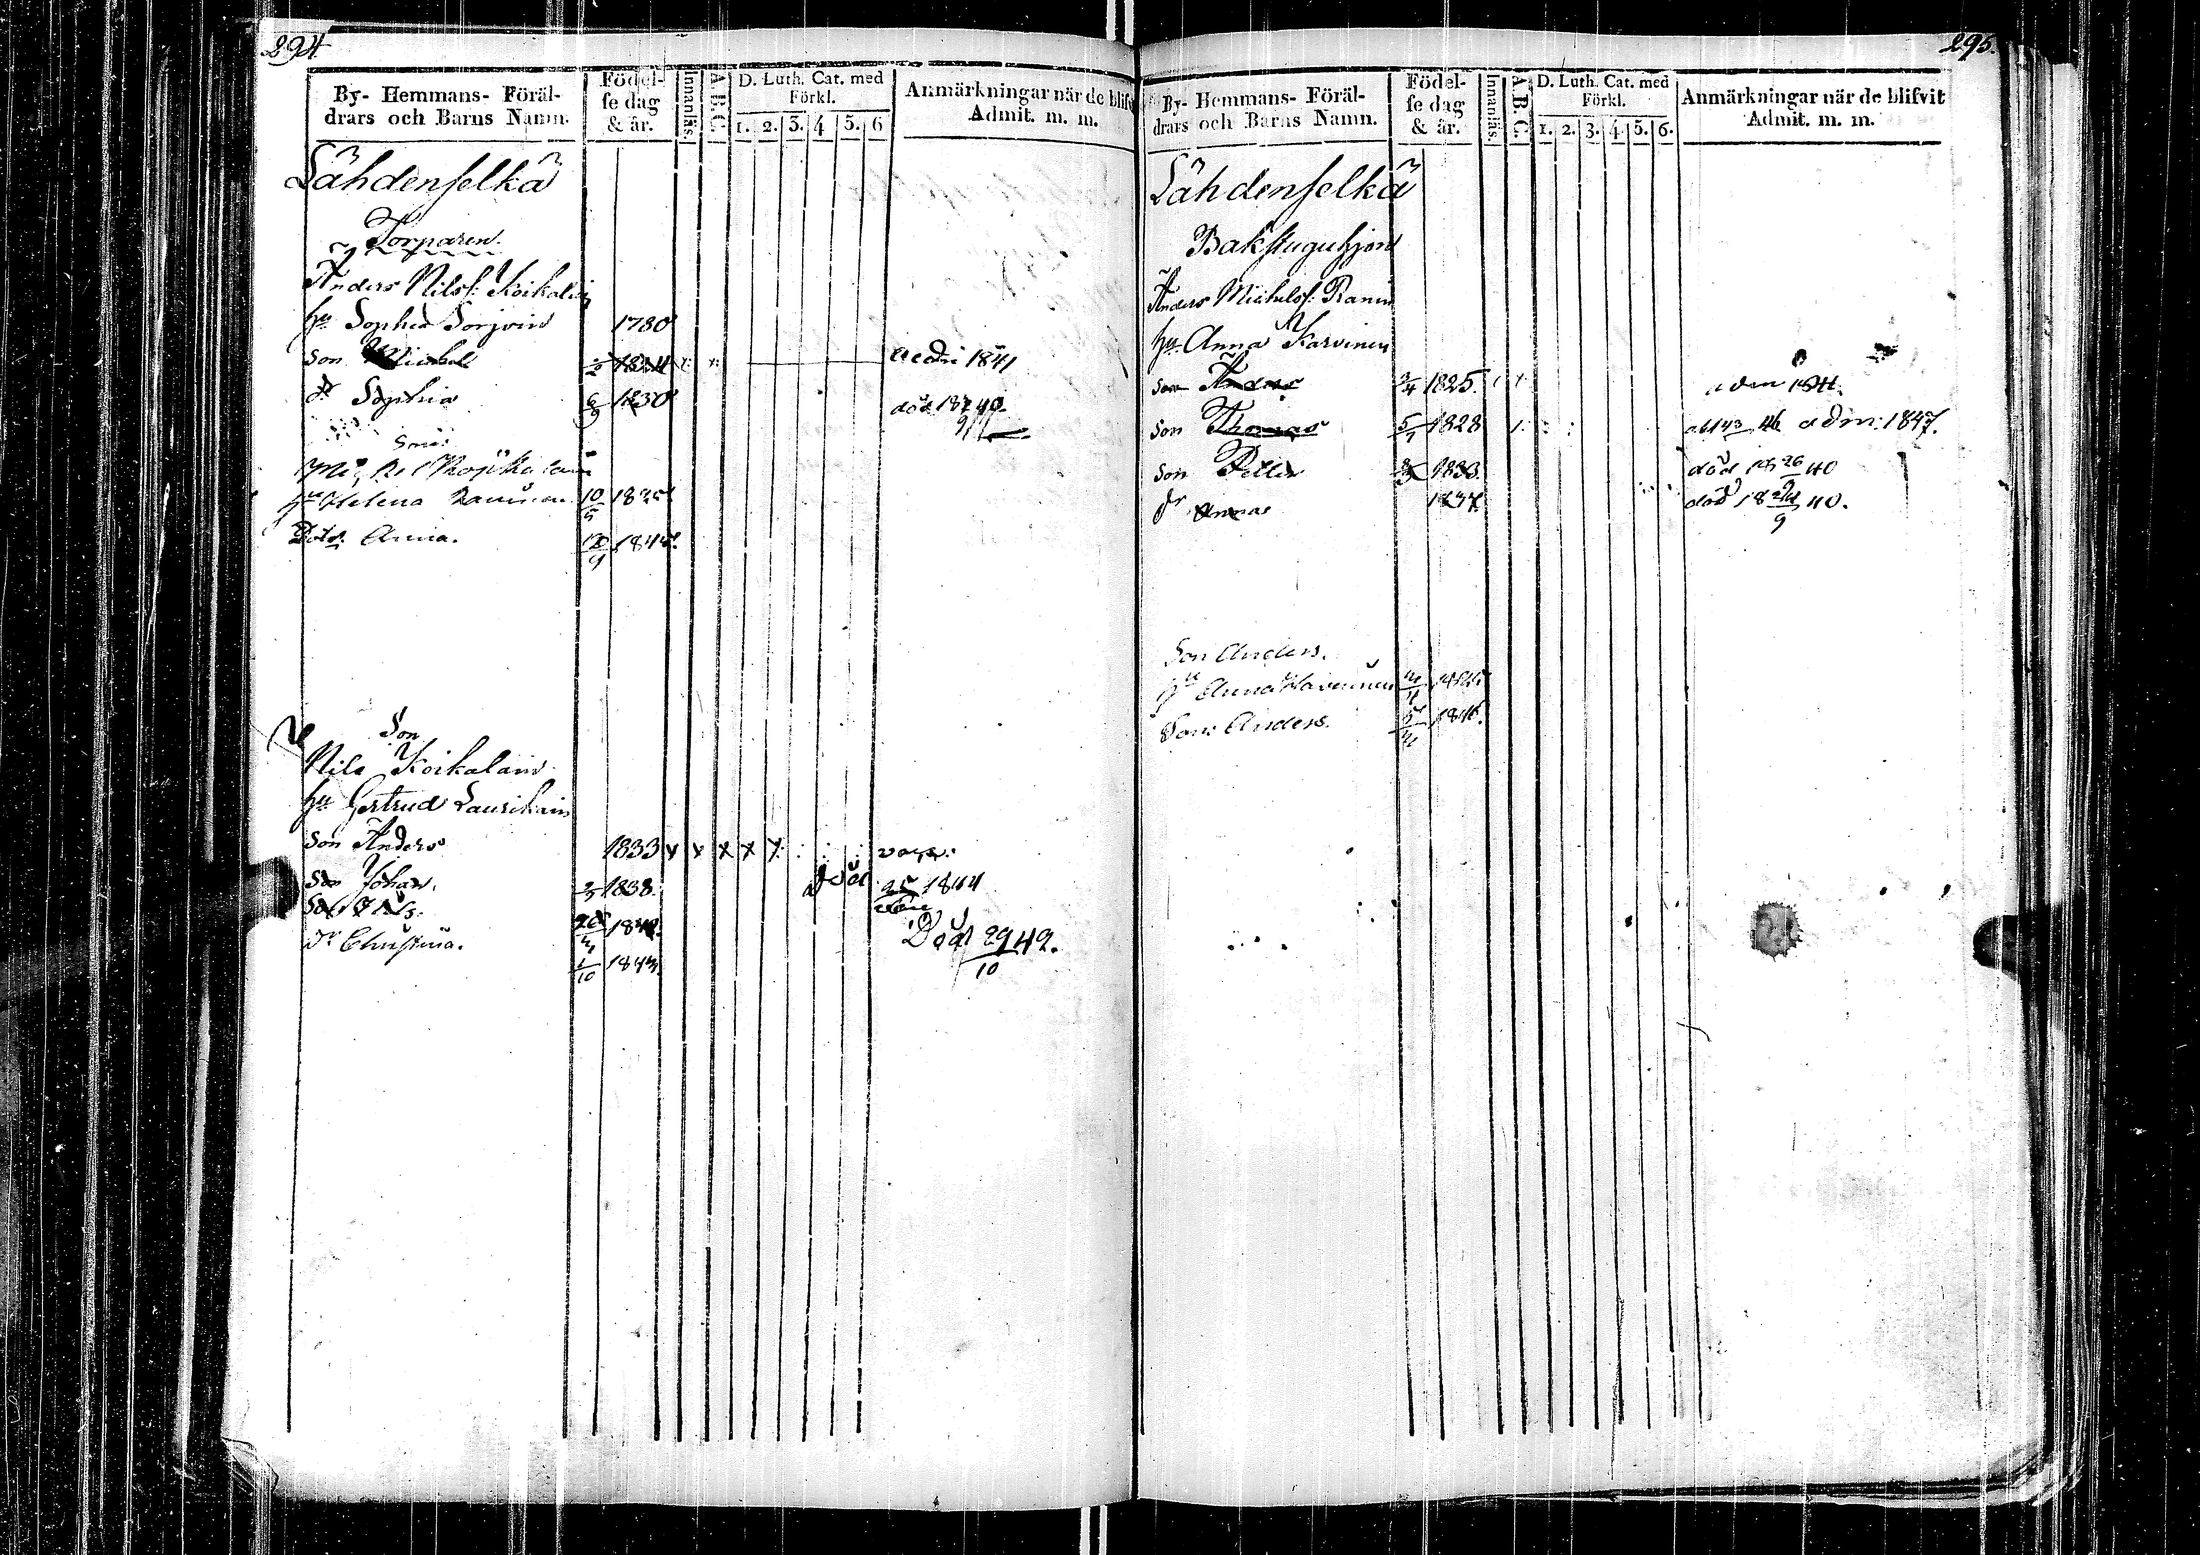 294.
By- Hemmans- Föräl-
drars och Barns Namn.
Födel-
se dag
& år.
Innanläs.
A.B.C.
D. Luth. Cat. med
Förkl.
1. 2. 3. 4 5. 6
Anmärkningar när de blifvit
Admit. m. m.
Lähdenselkä
Torparen
Anders Nilss: Koikalain
hu Sophia Sorjoin 1780
Son Michel 1824 1841
dr Sophia 6/9 1830 död 40.
Son
Koikalain
hu Helena 10/5 1825
Dotr. Anna. 9 184
Son
Nils Koikalain
hu Gertrud Laurikain
Son Anders 1833 x x x x x
Son Johan. 1838. död 25 1844
Son Nils. 184
dr Christina. 1/10 1843. Död 29/10 42.
295.
By- Hemmans- Föräl-
drars och Barns Namn.
Födel-
se dag
& år.
Innanläs.
A.B.C.
D. Luth. Cat. med
Förkl.
1. 2. 3. 4. 5. 6.
Anmärkningar när de blifvit
Admit. m. m.
Lähdenselkä
Bakstuguhjon
Anders Michelss: Ranin
hu Anna Karvinen
son Anders 3/4 1825. adm 1841.
son Thomas 5/1 1828 46 adm: 1847.
son Petter 1833. död 26 40
dr Anna 1837 död 18 24/9 40.
Son Anders.
hu Anna
Son: Anders. 1846.